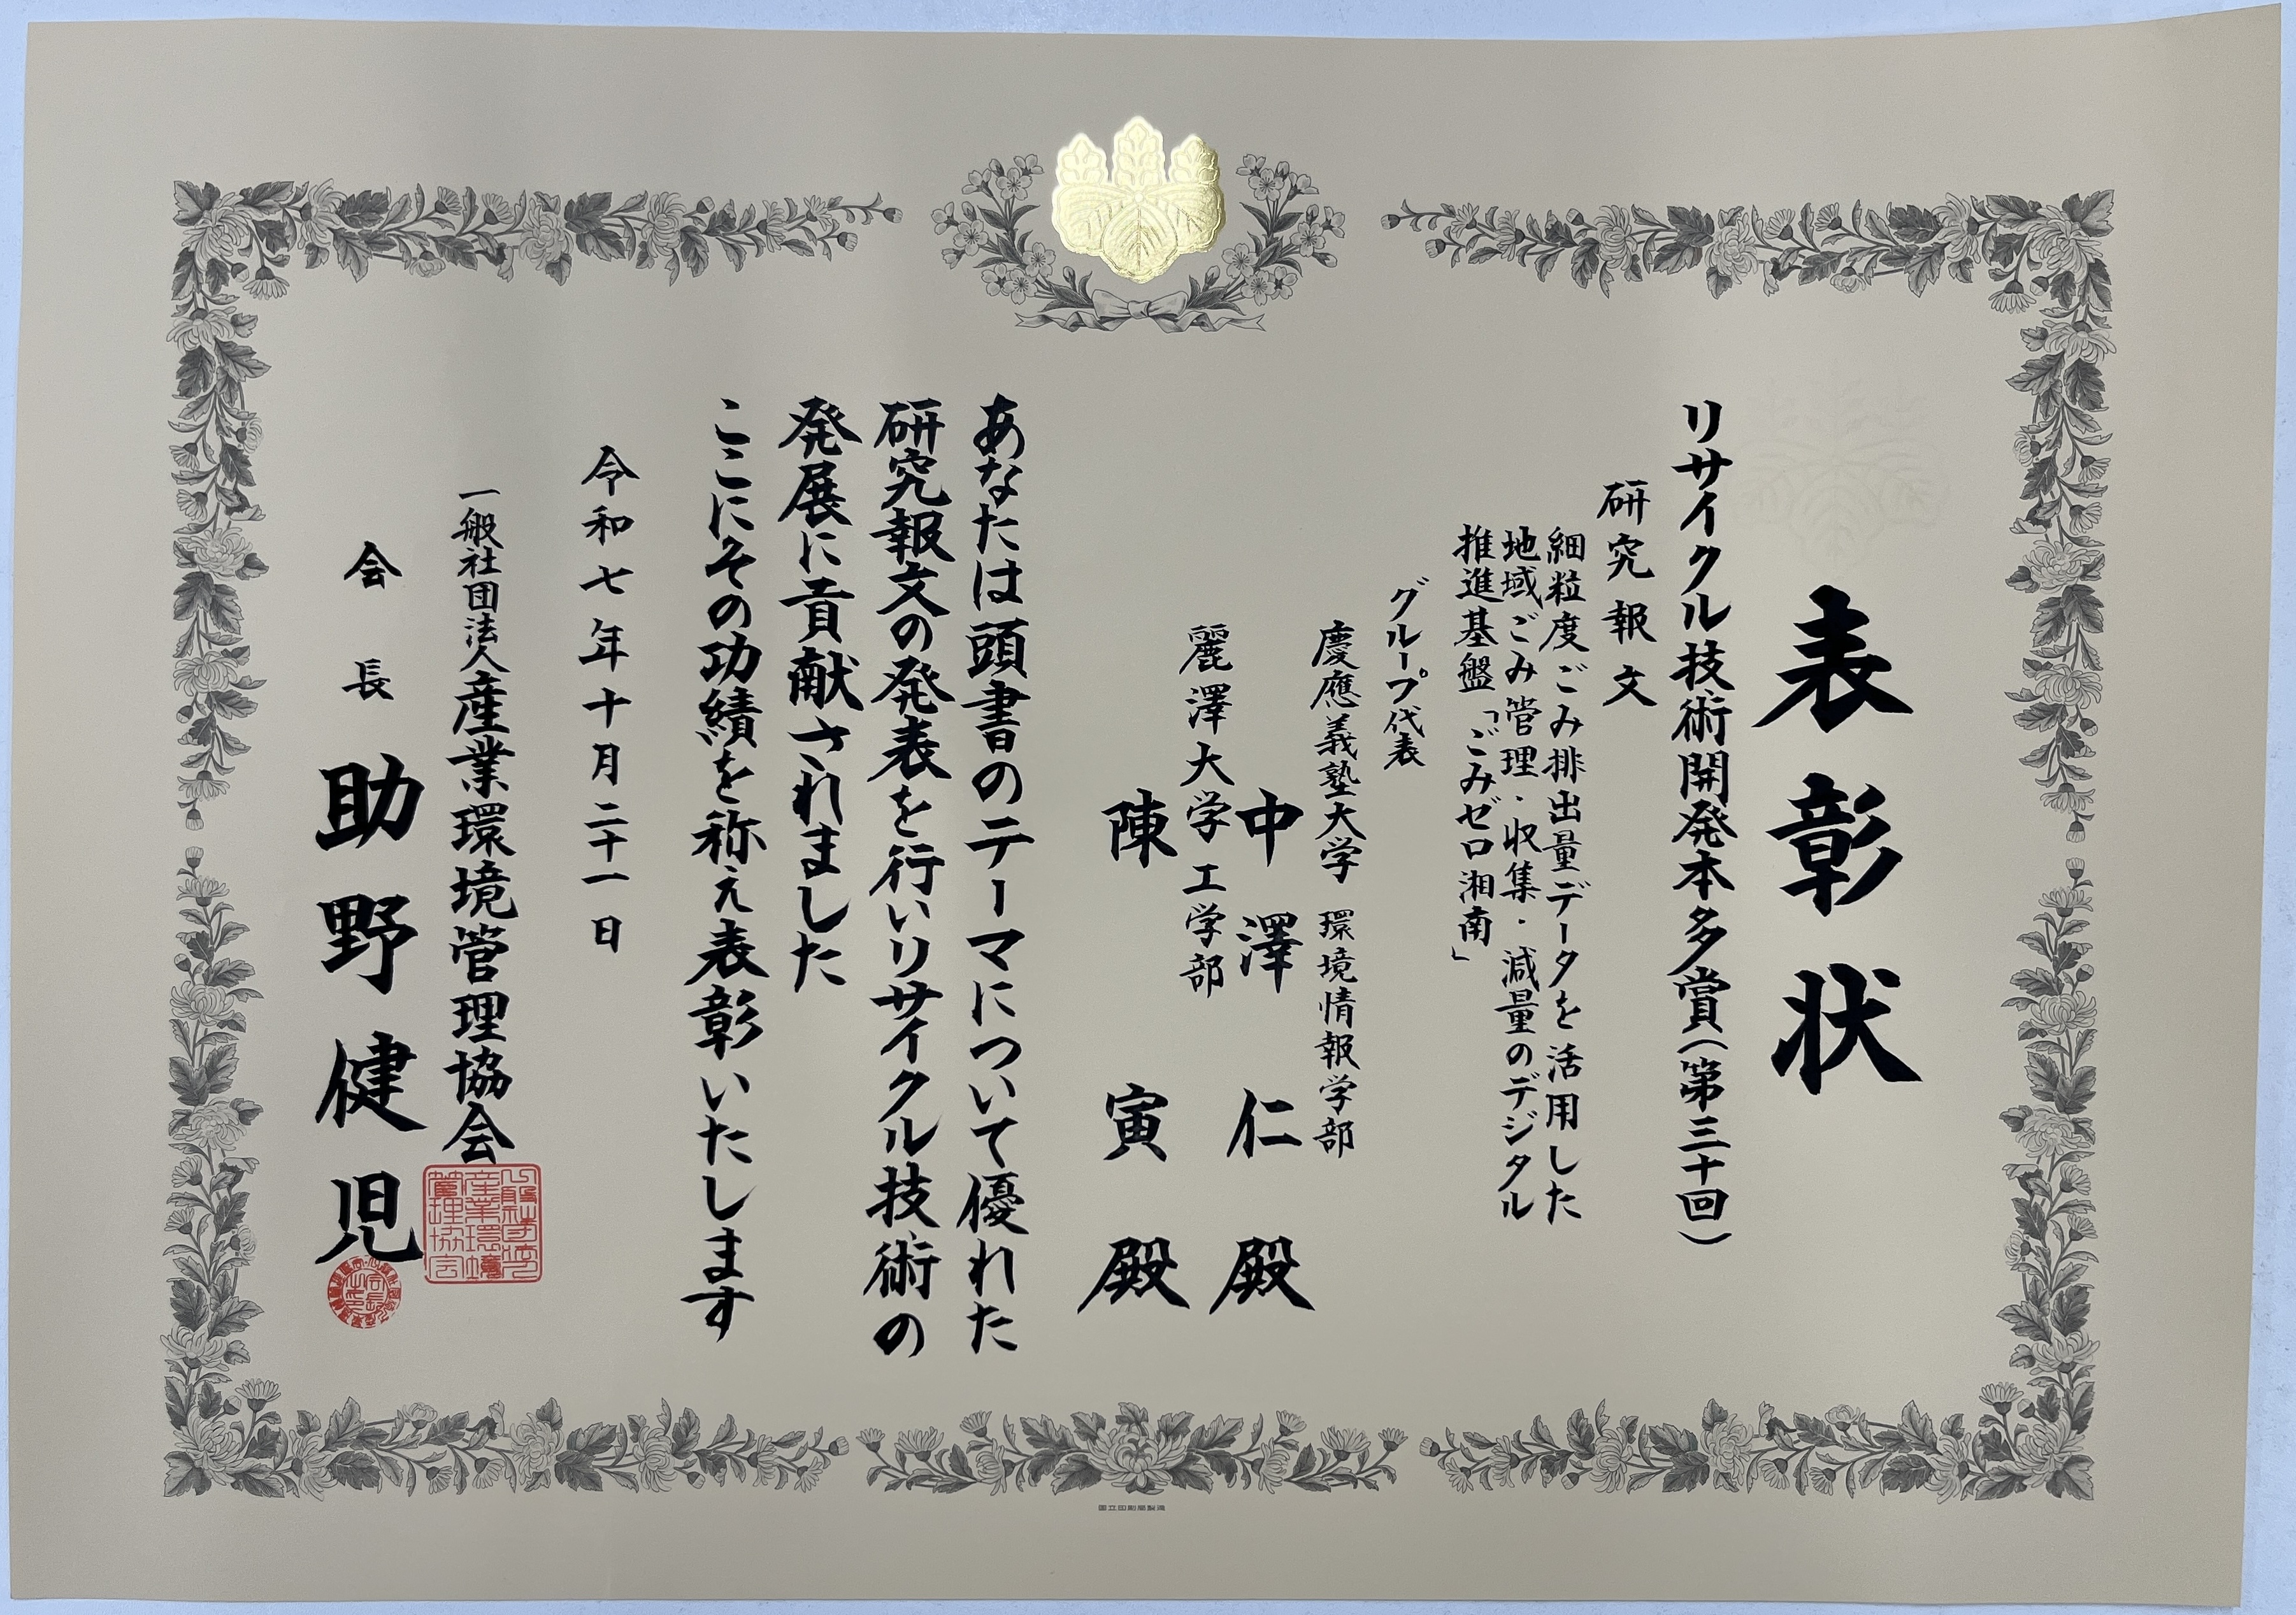 表彰状
リサイクル技術開発本多賞（第三十回）
研究報文
細粒度ごみ排出量データを活用した
地域ごみ管理・収集・減量のデジタル
推進基盤「ごみゼロ湘南」
グループ代表
慶應義塾大学 環境情報学部
中澤 仁 殿
麗澤大学 工学部
陳 寅 殿
あなたは頭書のテーマについて優れた
研究報文の発表を行いリサイクル技術の
発展に貢献されました
ここにその功績を称え表彰いたします
令和七年十月二十一日
一般社団法人産業環境管理協会
会長 助野健児
国立印刷局製造